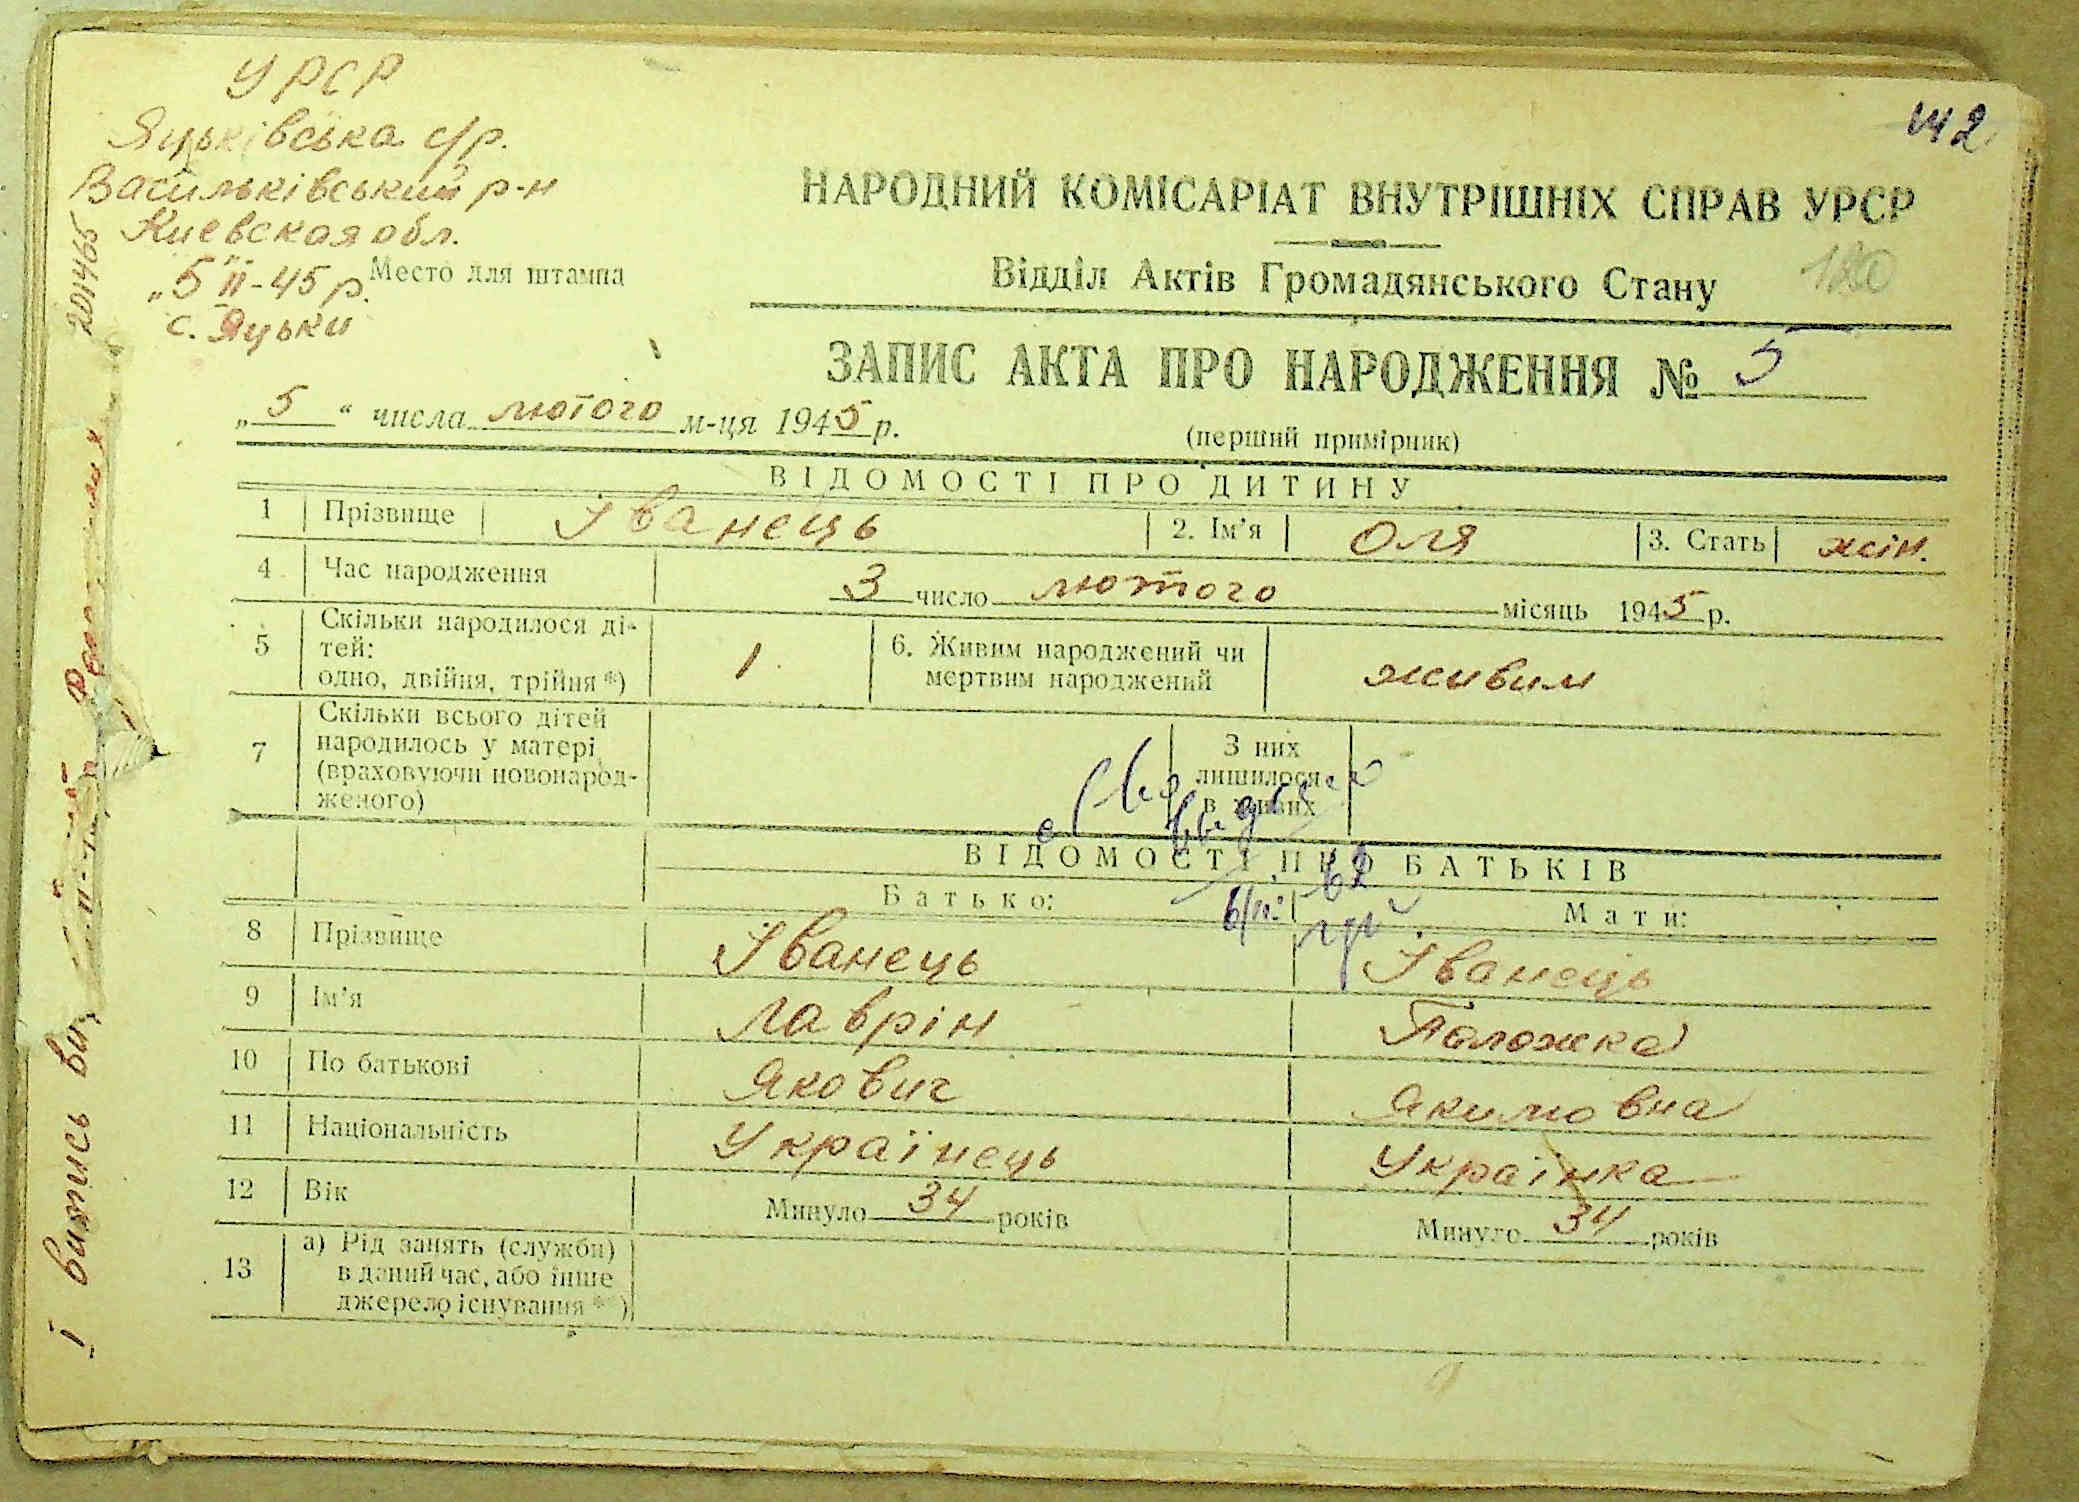 УРСР
Яцьківська с/р.
Васильківський р-н
Киевская обл.
„5 II-45 р.
с. Яцьки
Место для штампа
142
НАРОДНИЙ КОМІСАРІАТ ВНУТРІШНІХ СПРАВ УРСР
Відділ Актів Громадянського Стану
180
ЗАПИС АКТА ПРО НАРОДЖЕННЯ № 5
„5“ числа лютого м-ця 1945 р.
(перший примірник)
ВІДОМОСТІ ПРО ДИТИНУ
1 Прізвище Іванець 2. Ім'я Оля 3. Стать жін.
4 Час народження 3 число лютого місяць 1945 р.
5 Скільки народилося ді-
тей:
одно, двійня, трійня*) 1 6. Живим народжений чи
мертвим народжений живим
7 Скільки всього дітей
народилось у матері
(враховуючи новонарод-
женого)
З них
лишилося
в живих
ВІДОМОСТІ ПРО БАТЬКІВ
Батько: Мати:
8 Прізвище Іванець Іванець
9 Ім'я Лаврін Паложка
10 По батькові Якович Якимовна
11 Національність Українець Українка
12 Вік Минуло 34 років Минуло 34 років
13 а) Рід занять (служби)
в даний час, або інше
джерело існування**)
201465